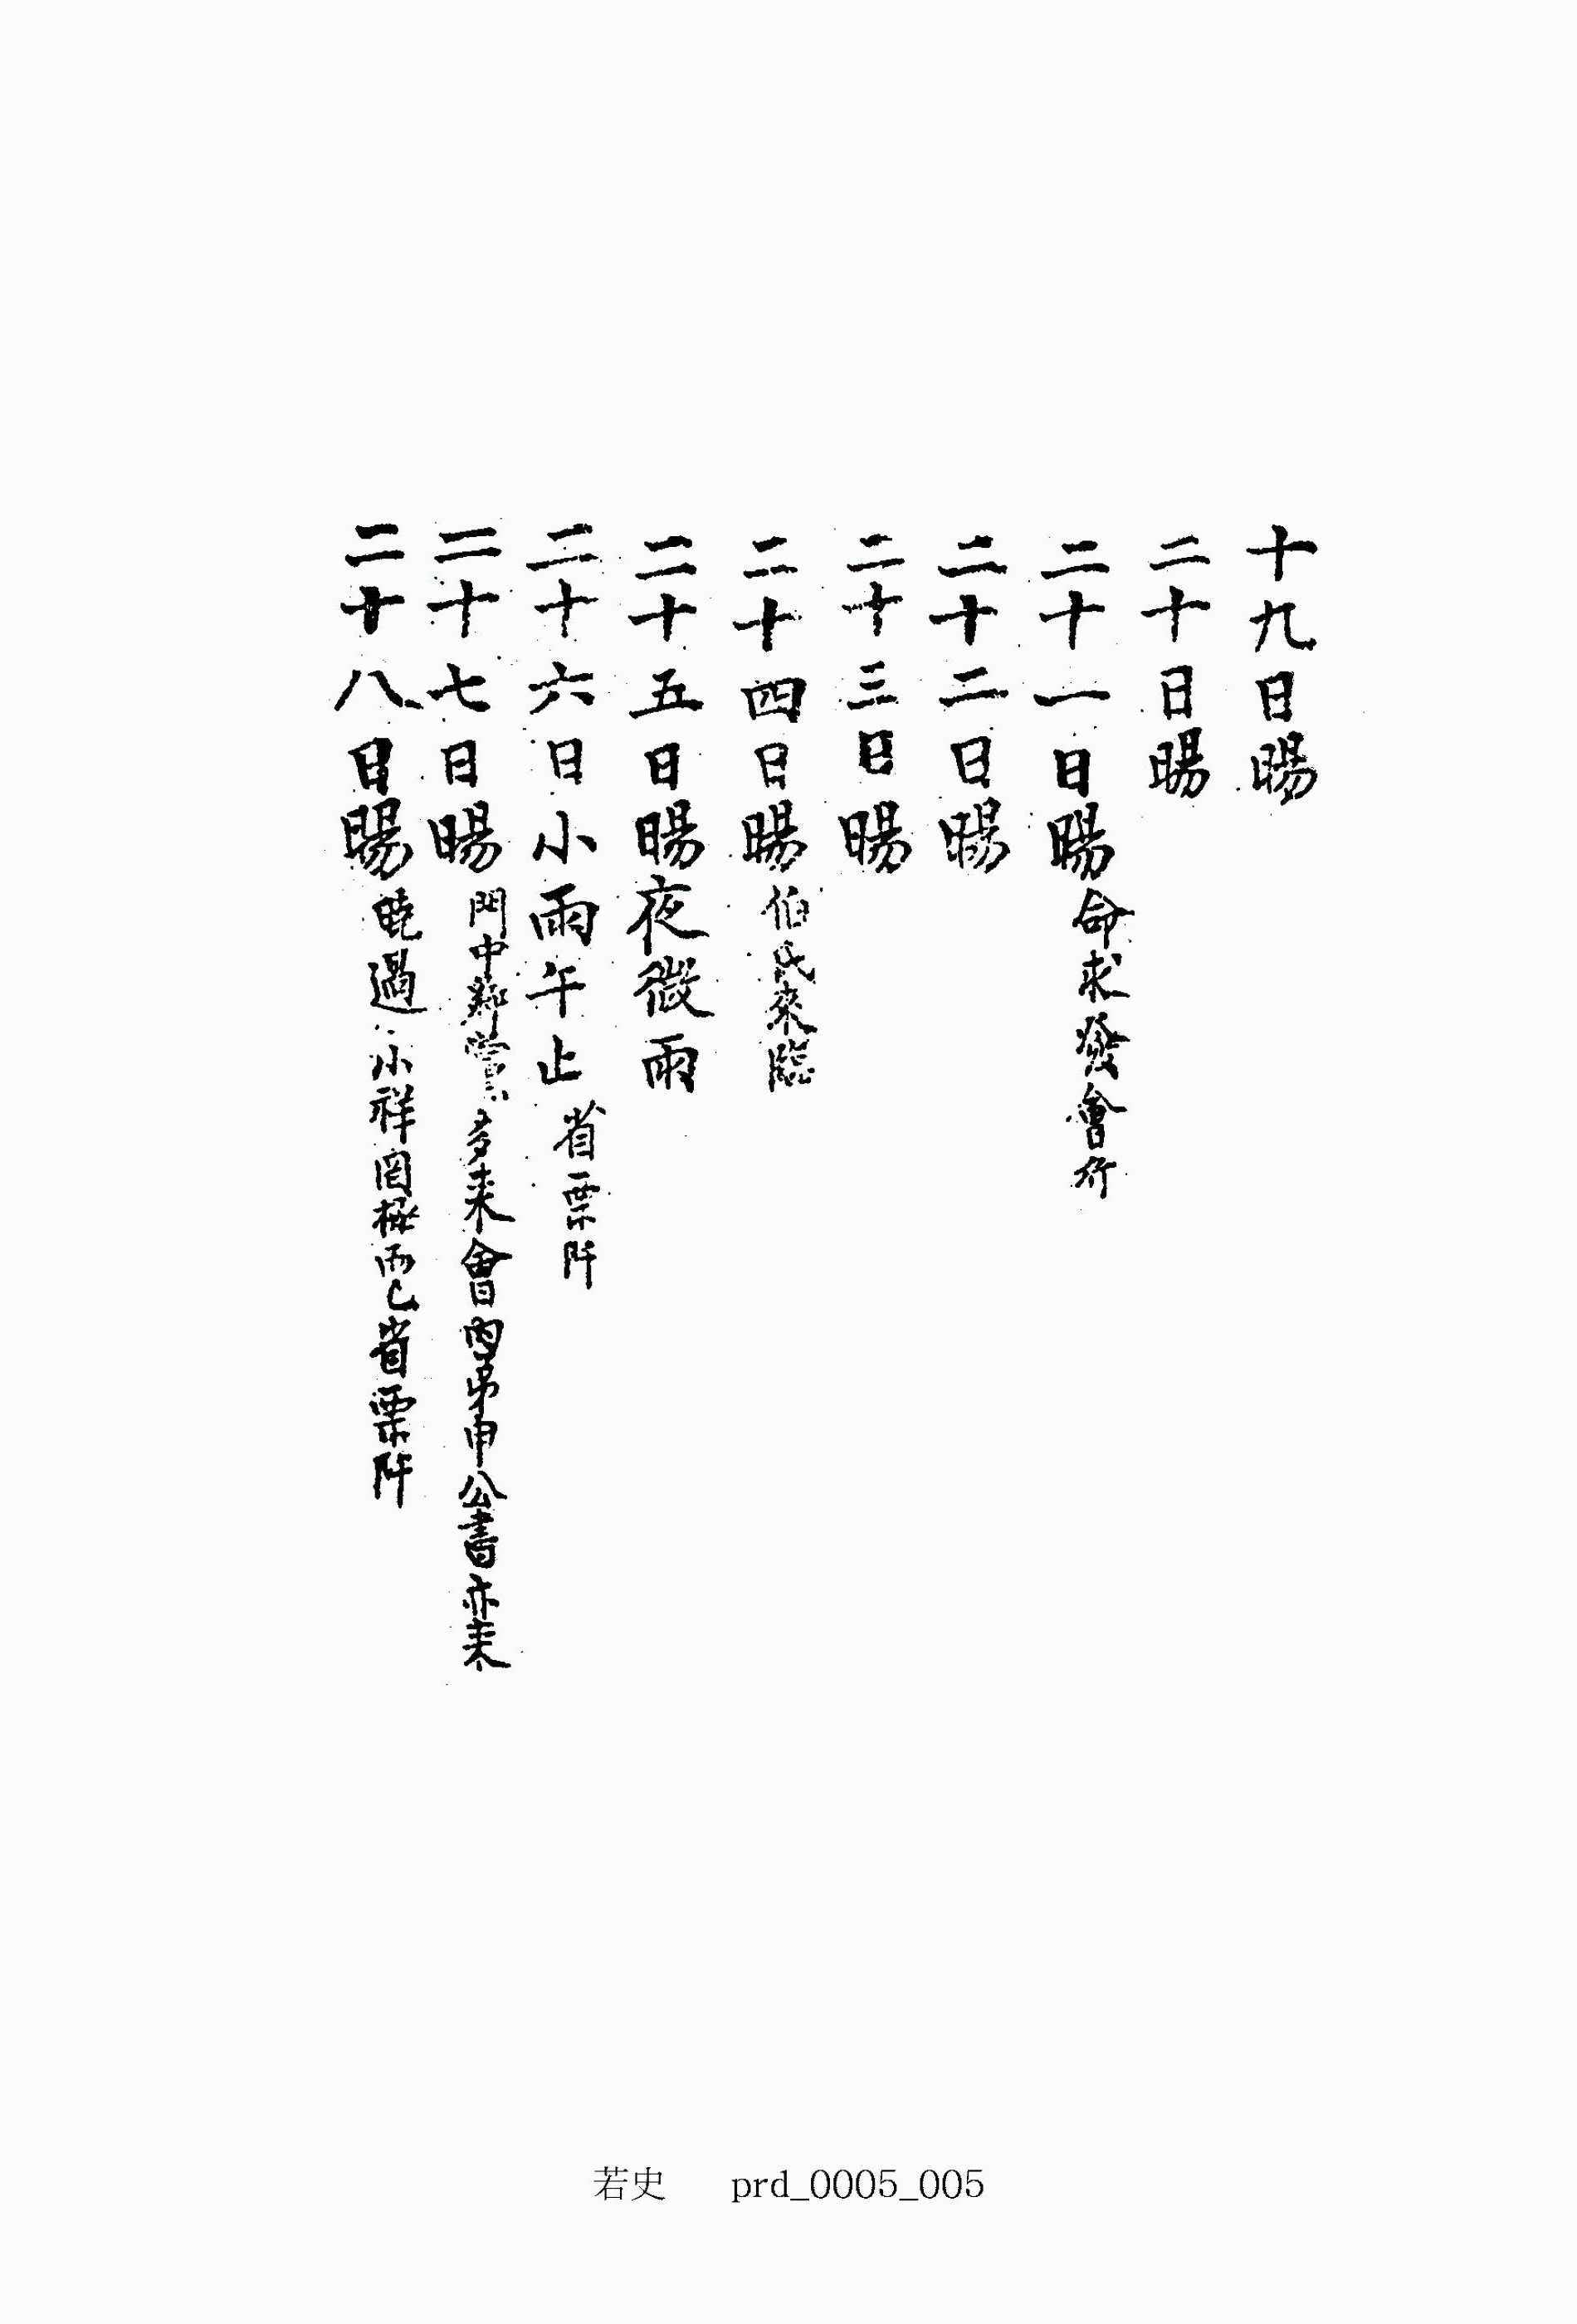 十九日暘
二十日暘
二十一日暘 命求發會行
二十二日暘
二十三日暘
二十四日暘 伯氏來臨
二十五日暘夜微雨
二十六日小雨午止 省栗阡
二十七日暘 門中鄕黨多来會內弟申公書亦来
二十八日暘 曉過小祥罔極而已省栗阡
若史 prd_0005_005